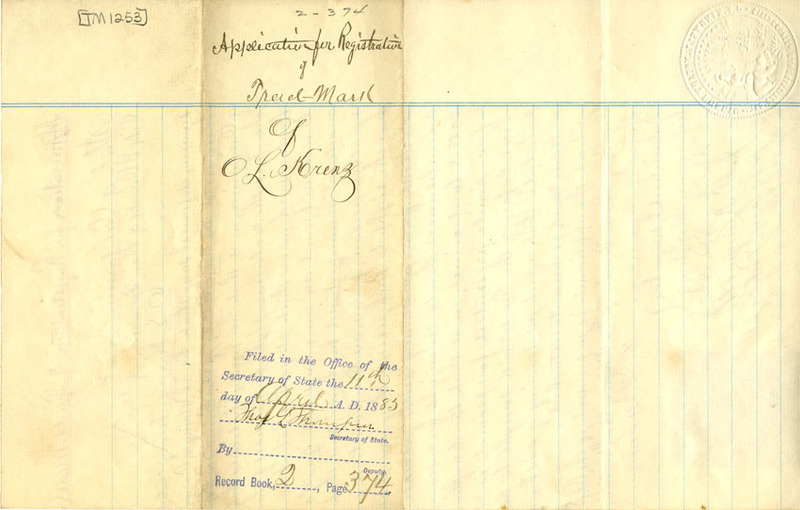 [TM1253]
2-374
Application for Registration
of
Trade-Mark
of
L. Krenz
Filed in the Office of the
Secretary of State the 11th
day of April A. D. 1883
Thos L Thompson
Secretary of State.
By
Deputy.
Record Book, 2, Page 374